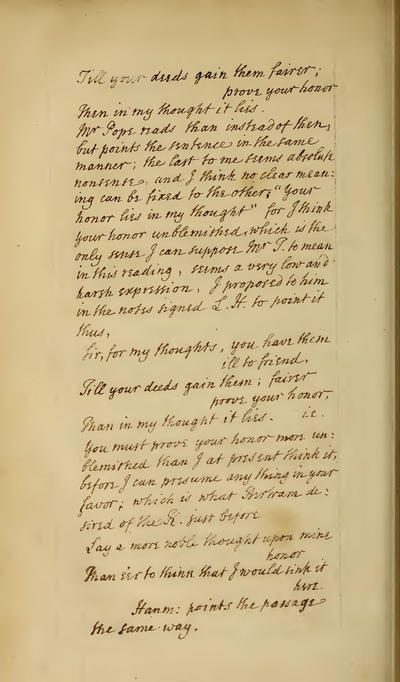 Till your deeds gain them fairer;
prove your honor
Then in my thought it lies.
Mr Pope reads than instead of then,
but points the sentence in the same
manner; the last to me seems absolute
nonsense, and I think no clear mean:
ing can be fixed to the other; "your
honor lies in my thought" for I think
your honor unblemished, which is the
only sense I can suppose Mr T. to mean
in this reading, seems a very low and
harsh expression, I proposed to him
in the notes signed L. H. to point it
thus,
Sir, for my thoughts, you have them
ill to friend,
Till your deeds gain them; fairer
prove your honor,
Than in my thought it lies. i.e.
you must prove your honor more un:
blemished than I at present think it,
before I can presume any thing in your
favor; which is what Bertram de:
sired of the K. just before
Lay a more noble thought upon mine
honor
Than e'er to think that I would sink it
here.
Hanm: points the passage
the same way.